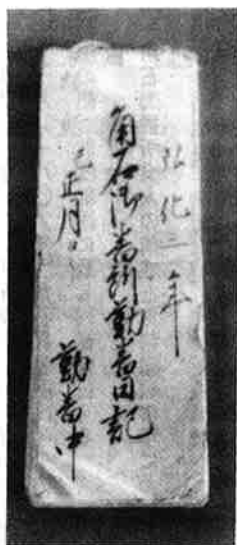 弘化二年
角石御番所勤番日記
巳正月
勤番中